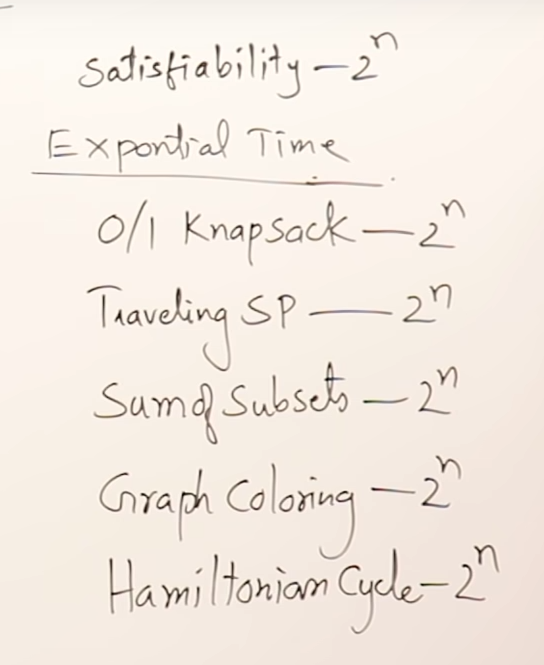 Satisfiability – 2ⁿ
Expontial Time
0/1 Knapsack – 2ⁿ
Traveling SP – 2ⁿ
Sum of Subsets – 2ⁿ
Graph Coloring – 2ⁿ
Hamiltonian Cycle – 2ⁿ